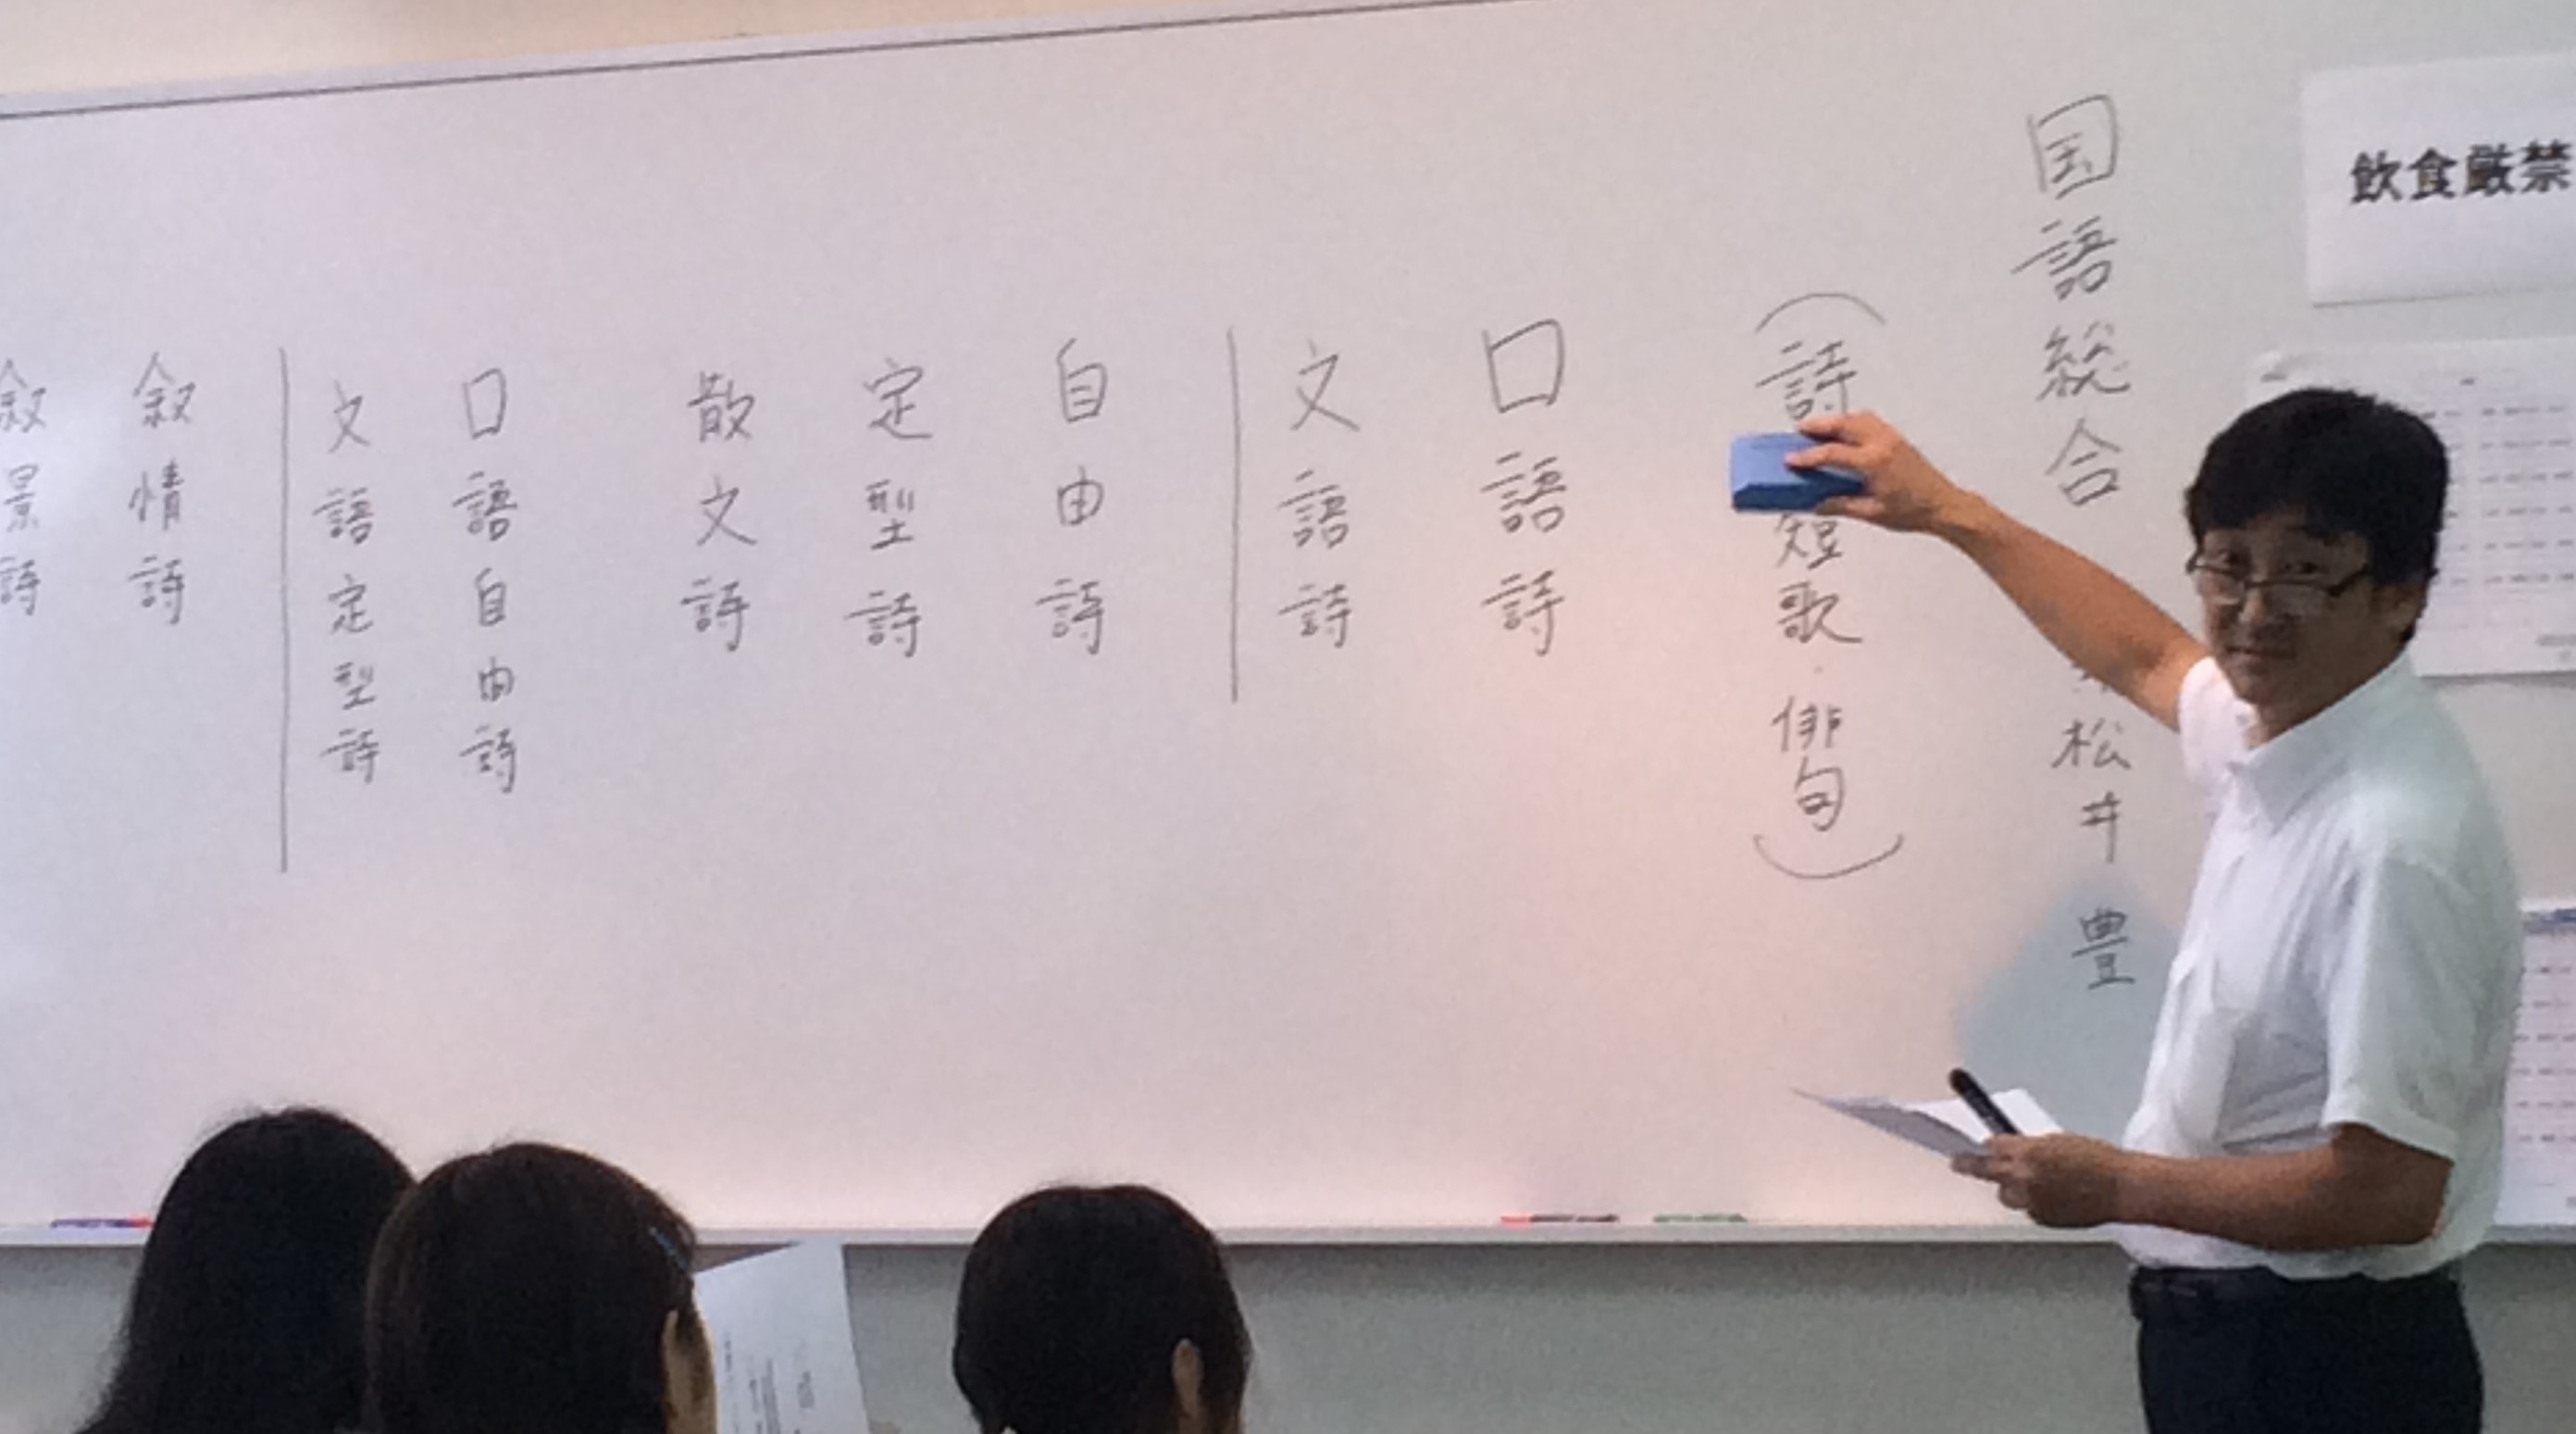 飲食厳禁
国語総合 松井豊
(詩 短歌・俳句)
口語詩
文語詩
自由詩
定型詩
散文詩
口語自由詩
文語定型詩
叙情詩
叙景詩